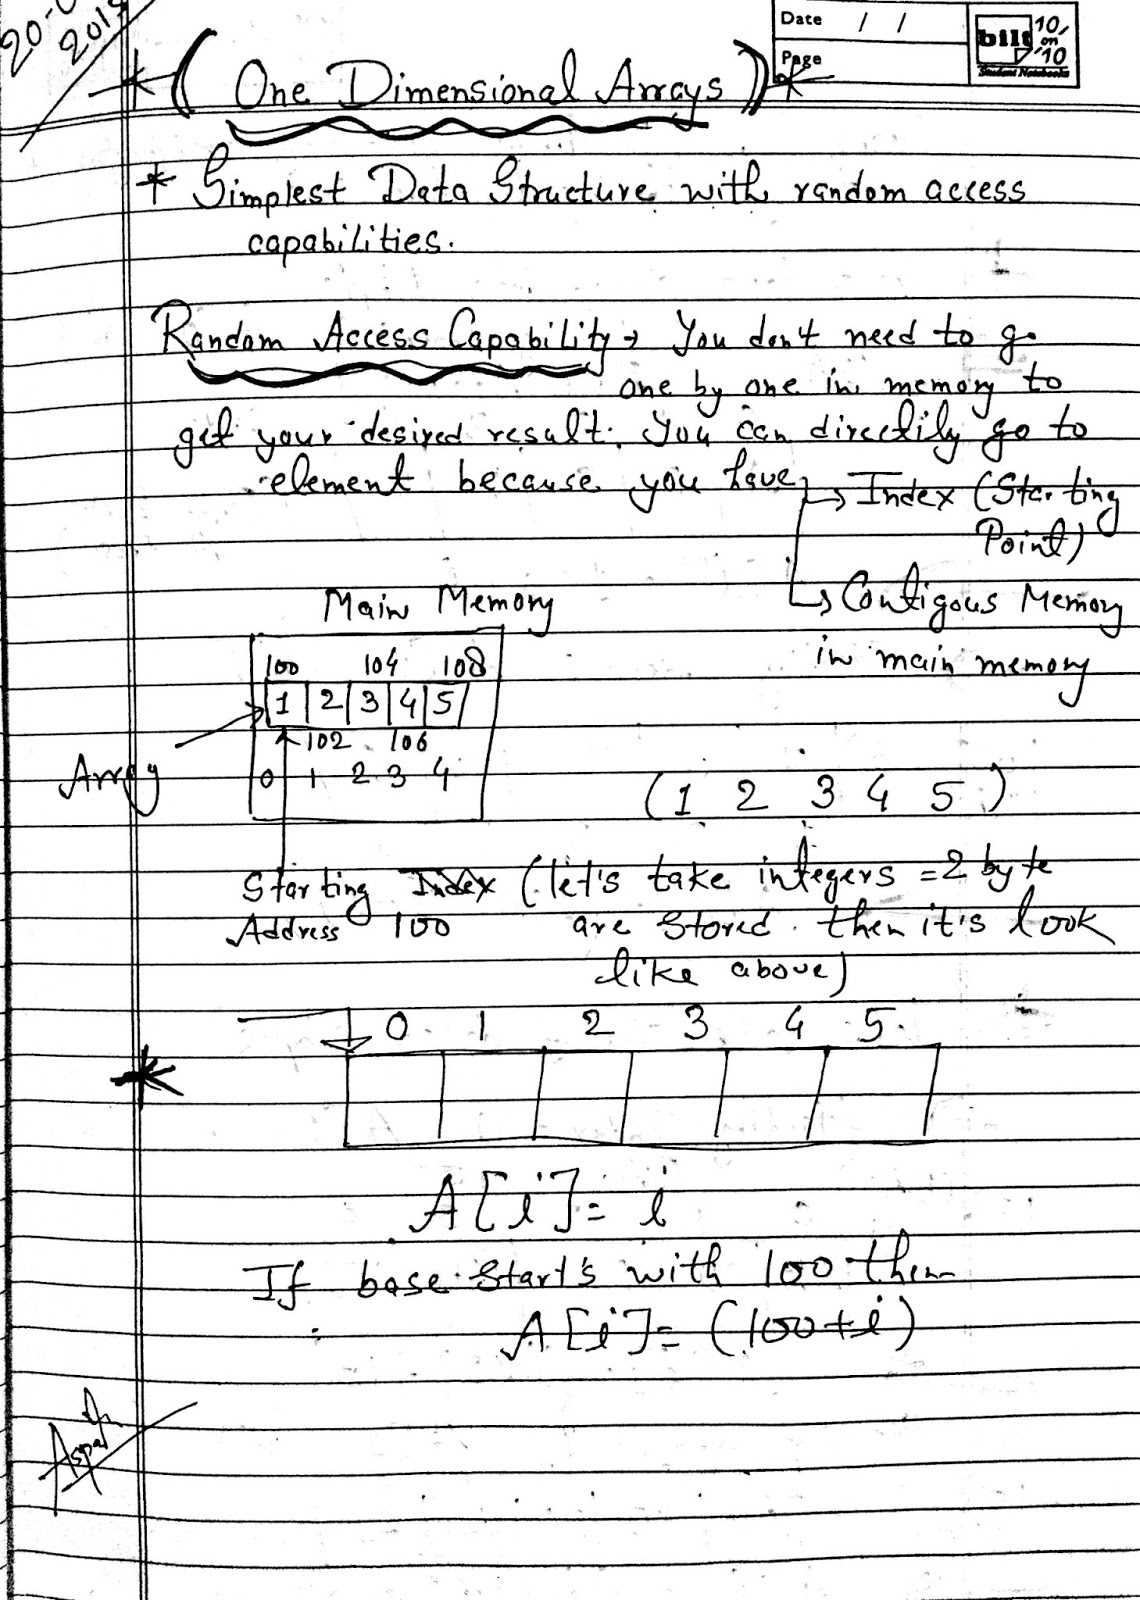 Date / /
Page
bilt 10 on 10
Student Notebooks
( One Dimensional Arrays )
* Simplest Data Structure with random access
capabilities.
Random Access Capability → You don't need to go
one by one in memory to
get your desired result. You can directily go to
element because you have → Index (Starting
Point)
→ Contigous Memory
in main memory
Main Memory
100 104 108
1 2 3 4 5
102 106
Array
0 1 2 3 4
(1 2 3 4 5)
Starting Index (let's take integers = 2 byte
Address 100 are stored. then it's look
like above)
0 1 2 3 4 5
*
A[i] = i
If base start's with 100 then
A[i] = (100+i)